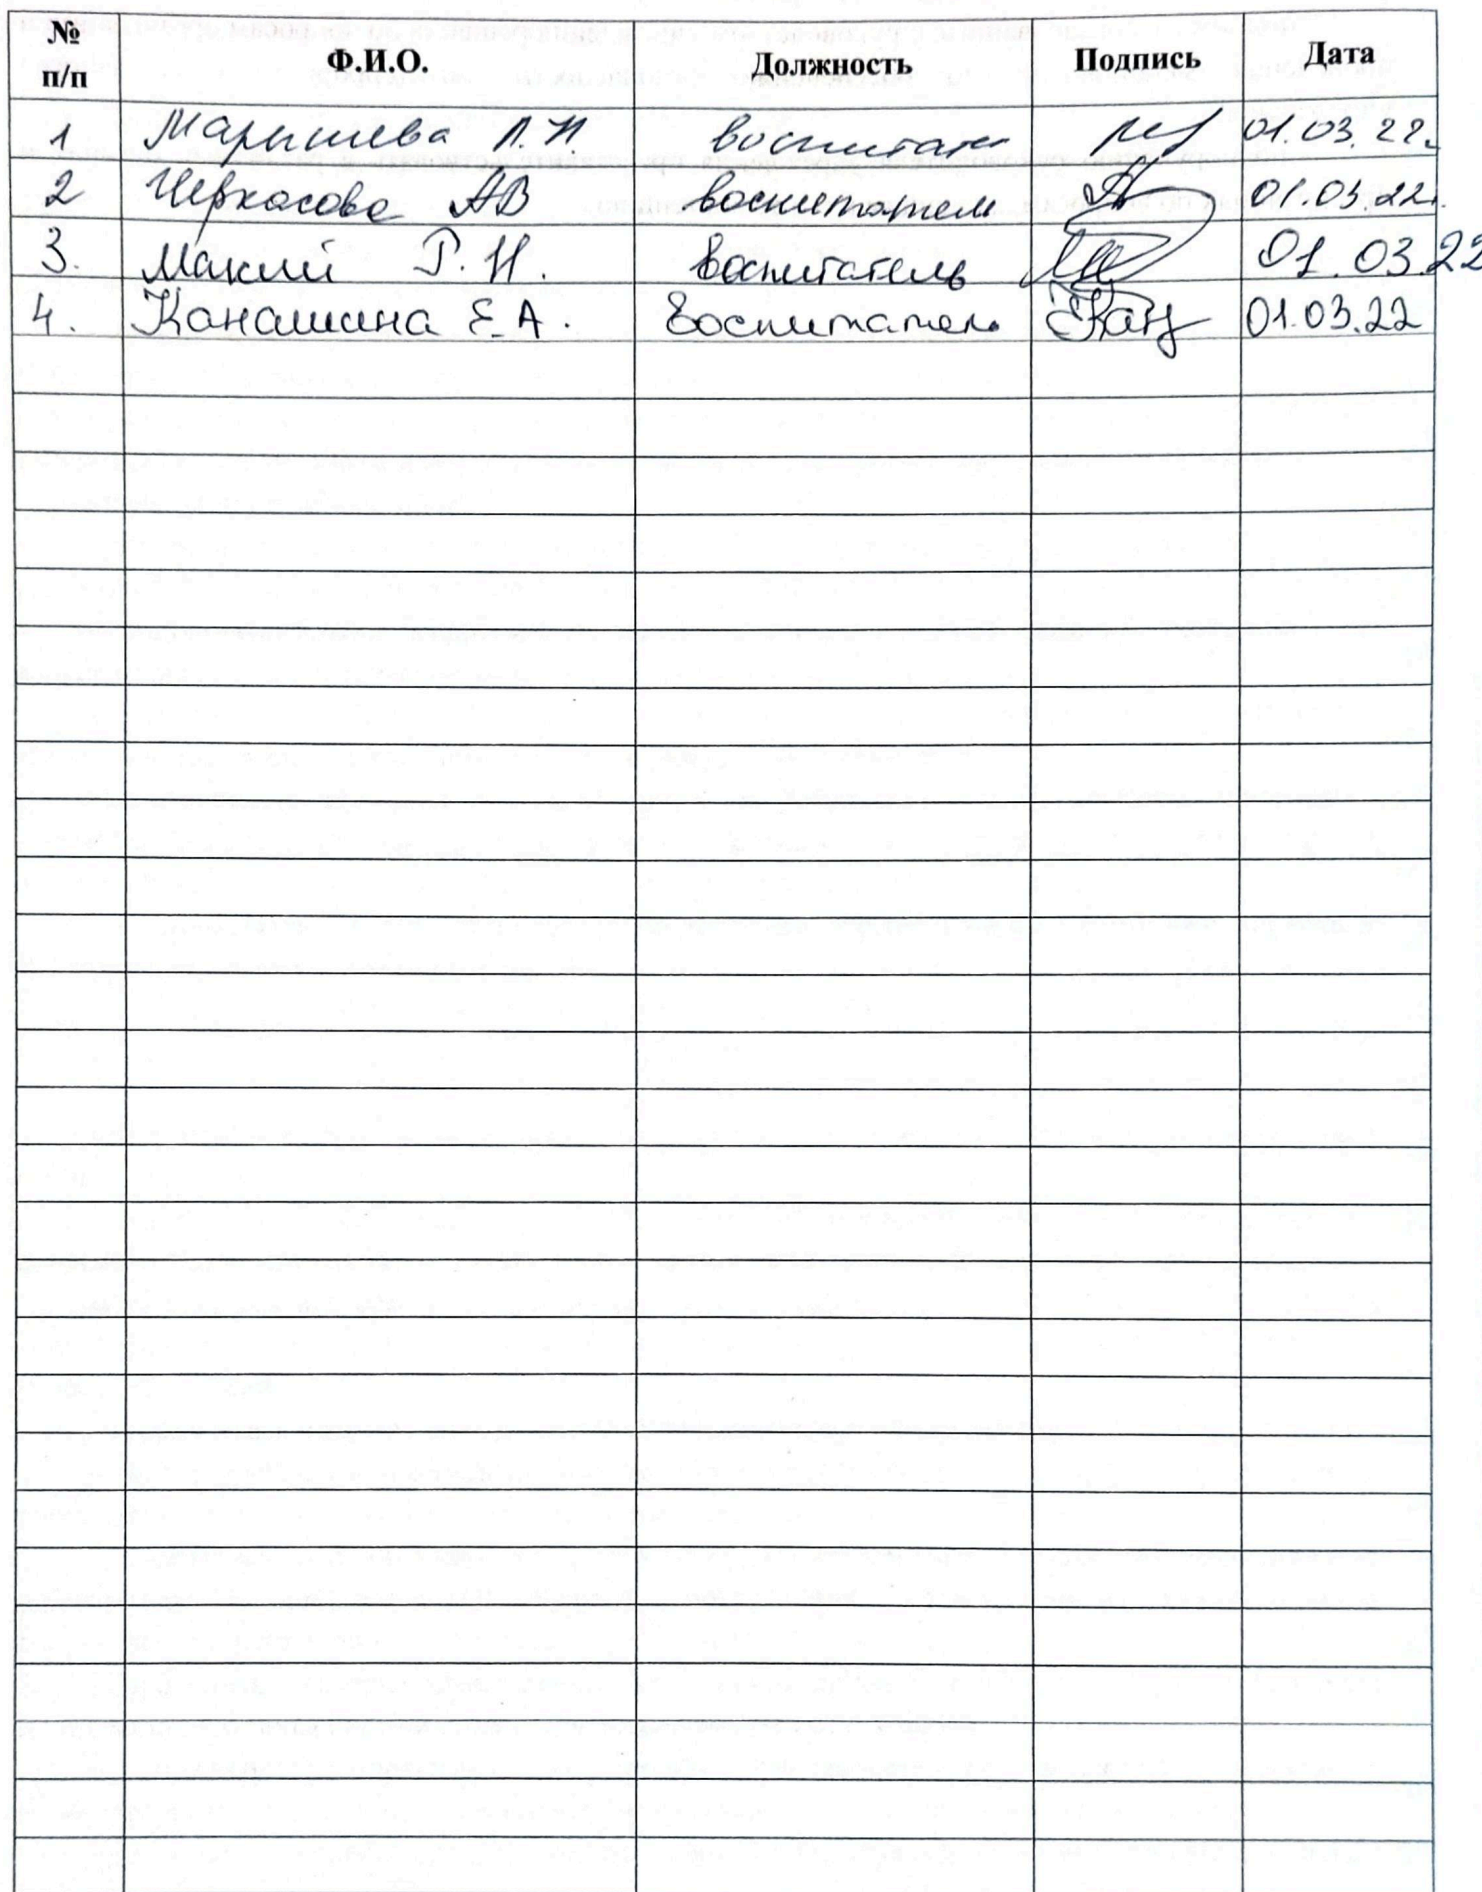 № п/п Ф.И.О. Должность Подпись Дата
1 Марышева Л.Н. воспитат 01.03.22г.
2 Черкасова АВ воспитатель 01.03.22г.
3. Маклий Г.Н. воспитатель 01.03.22
4. Канашина Е.А. воспитатель 01.03.22